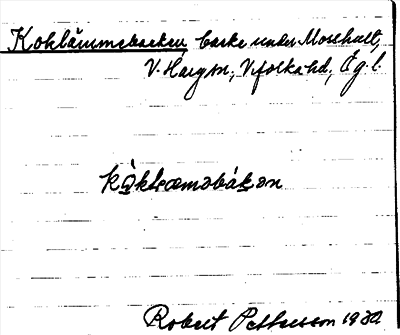 Kohlämmebacken backe under Mosshult,
V. Harg sn, Vifolka hd, Ög. l.
kò̱kḷæməbákən
Robert Pettersson 1930